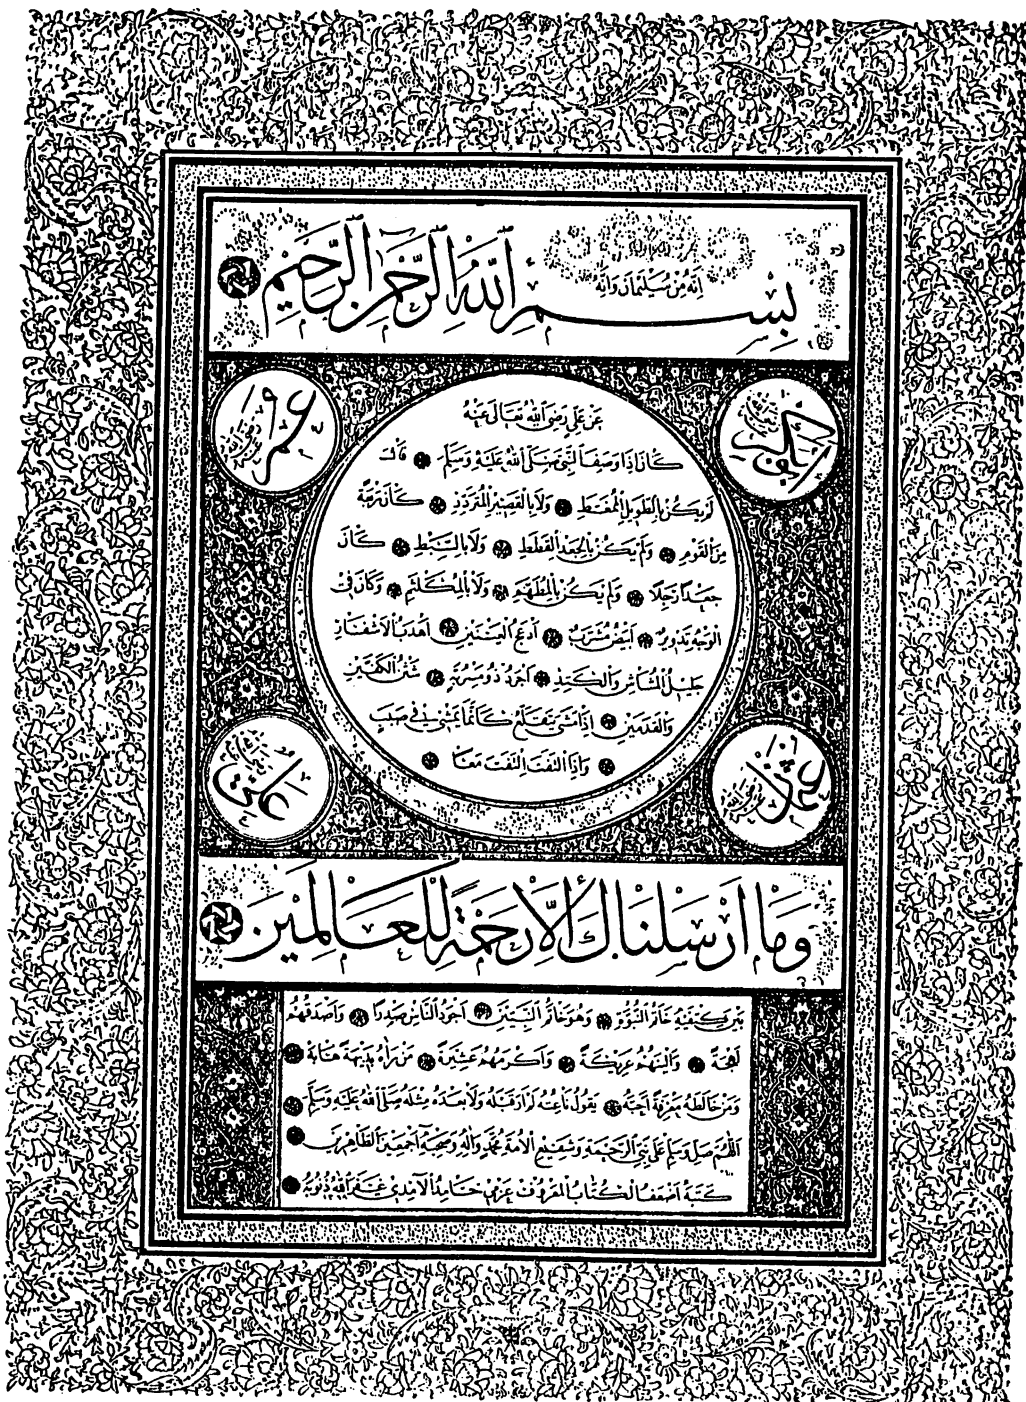 بِسْمِ اللّٰهِ الرَّحْمٰنِ الرَّحِيمِ
اِنَّهُ مِنْ سُلَيْمَانَ وَاِنَّهُ
ابوبكر
عمر
عَنْ عَلِيٍّ رَضِيَ اللّٰهُ تَعَالٰى عَنْهُ
كَانَ اِذَا وَصَفَ النَّبِيَّ صَلَّى اللّٰهُ عَلَيْهِ وَسَلَّمَ قَالَ
لَمْ يَكُنْ بِالطَّوِيلِ الْمُمَّغِطِ وَلَا بِالْقَصِيرِ الْمُتَرَدِّدِ كَانَ رَبْعَةً
مِنَ الْقَوْمِ وَلَمْ يَكُنْ بِالْجَعْدِ الْقَطَطِ وَلَا بِالسَّبِطِ كَانَ
جَعْدًا رَجِلًا وَلَمْ يَكُنْ بِالْمُطَهَّمِ وَلَا بِالْمُكَلْثَمِ وَكَانَ فِي
الْوَجْهِ تَدْوِيرٌ اَبْيَضُ مُشْرَبٌ اَدْعَجُ الْعَيْنَيْنِ اَهْدَبُ الْاَشْفَارِ
جَلِيلُ الْمُشَاشِ وَالْكَتَدِ اَجْرَدُ ذُو مَسْرُبَةٍ شَثْنُ الْكَفَّيْنِ
وَالْقَدَمَيْنِ اِذَا مَشٰى تَقَلَّعَ كَاَنَّمَا يَمْشِي فِي صَبَبٍ
وَاِذَا الْتَفَتَ الْتَفَتَ مَعًا
عثمان
علي
وَمَا اَرْسَلْنَاكَ اِلَّا رَحْمَةً لِلْعَالَمِينَ
بَيْنَ كَتِفَيْهِ خَاتَمُ النُّبُوَّةِ وَهُوَ خَاتَمُ النَّبِيِّينَ اَجْوَدُ النَّاسِ صَدْرًا وَاَصْدَقُهُمْ
لَهْجَةً وَاَلْيَنُهُمْ عَرِيكَةً وَاَكْرَمُهُمْ عَشِيرَةً مَنْ رَاٰهُ بَدِيهَةً هَابَهُ
وَمَنْ خَالَطَهُ مَعْرِفَةً اَحَبَّهُ يَقُولُ نَاعِتُهُ لَمْ اَرَ قَبْلَهُ وَلَا بَعْدَهُ مِثْلَهُ صَلَّى اللّٰهُ عَلَيْهِ وَسَلَّمَ
اَللّٰهُمَّ صَلِّ وَسَلِّمْ عَلٰى نَبِيِّ الرَّحْمَةِ وَشَفِيعِ الْاُمَّةِ مُحَمَّدٍ وَاٰلِهِ وَصَحْبِهِ اَجْمَعِينَ الطَّاهِرِينَ
كَتَبَهُ اَضْعَفُ الْكُتَّابِ الْمَعْرُوفُ حَامِدُ الْاٰمِدِيُّ غَفَرَ اللّٰهُ ذُنُوبَهُ